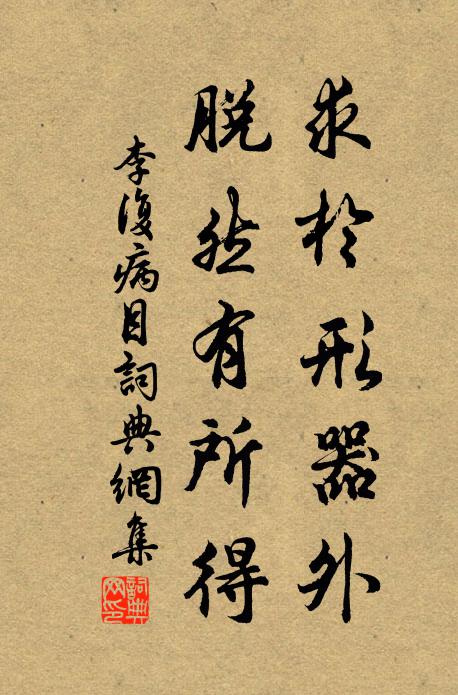 求於形器外
脱然有所得
李復病目詞典網集
詞典網印